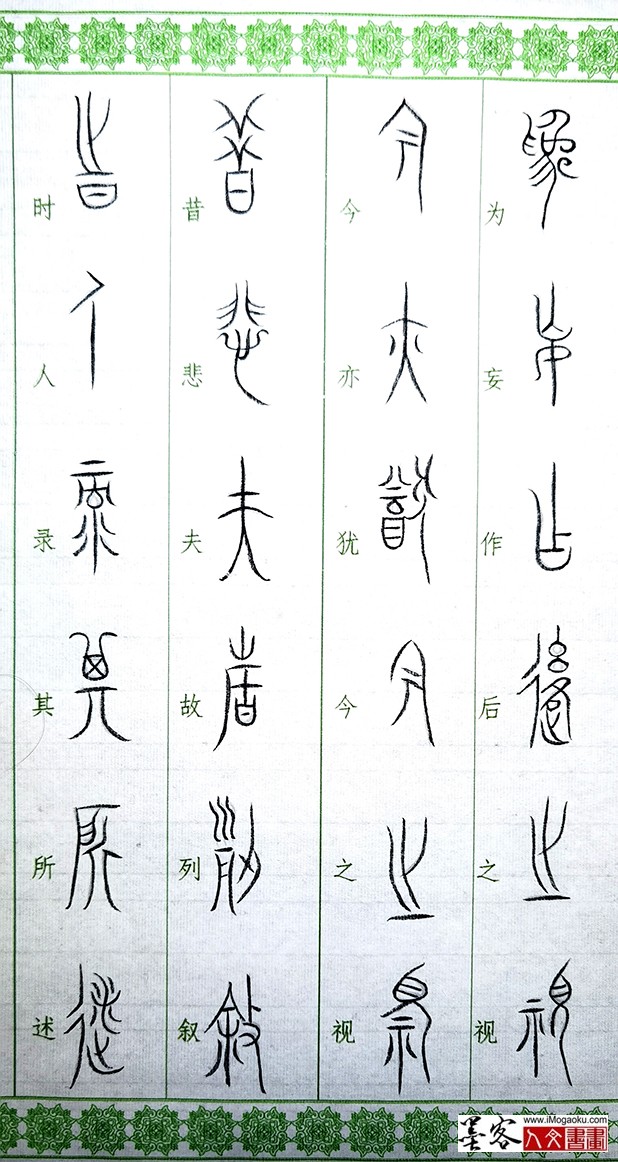 为妄作后之视
今亦犹今之视
昔悲夫故列叙
时人录其所述
www.iMogaoku.com
墨客
人文書畫